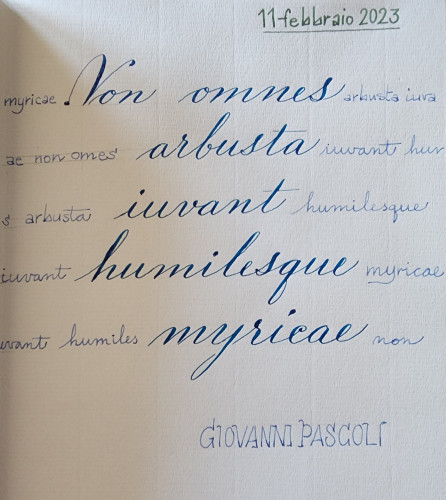 11 febbraio 2023
myricae Non omnes arbusta iuva
ae non omes arbusta iuvant hum
s arbusta iuvant humilesque
iuvant humilesque myricae
uvant humiles myricae non
GIOVANNI PASCOLI